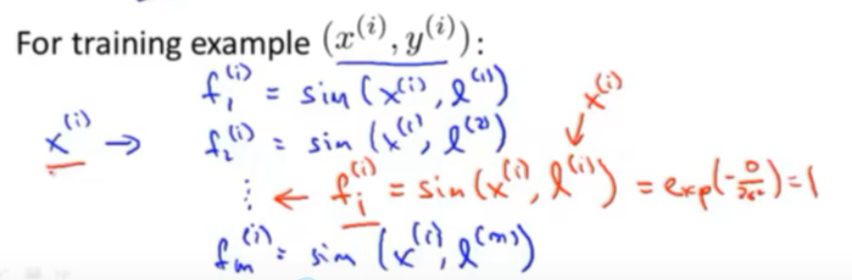 For training example (x^(i), y^(i)):
f_1^(i) = sim(x^(i), l^(1))
x^(i) → f_2^(i) = sim(x^(i), l^(2)) x^(i) ↓
⋮ ← f_i^(i) = sim(x^(i), l^(i)) = exp(-0/2σ²) = 1
f_m^(i) = sim(x^(i), l^(m))